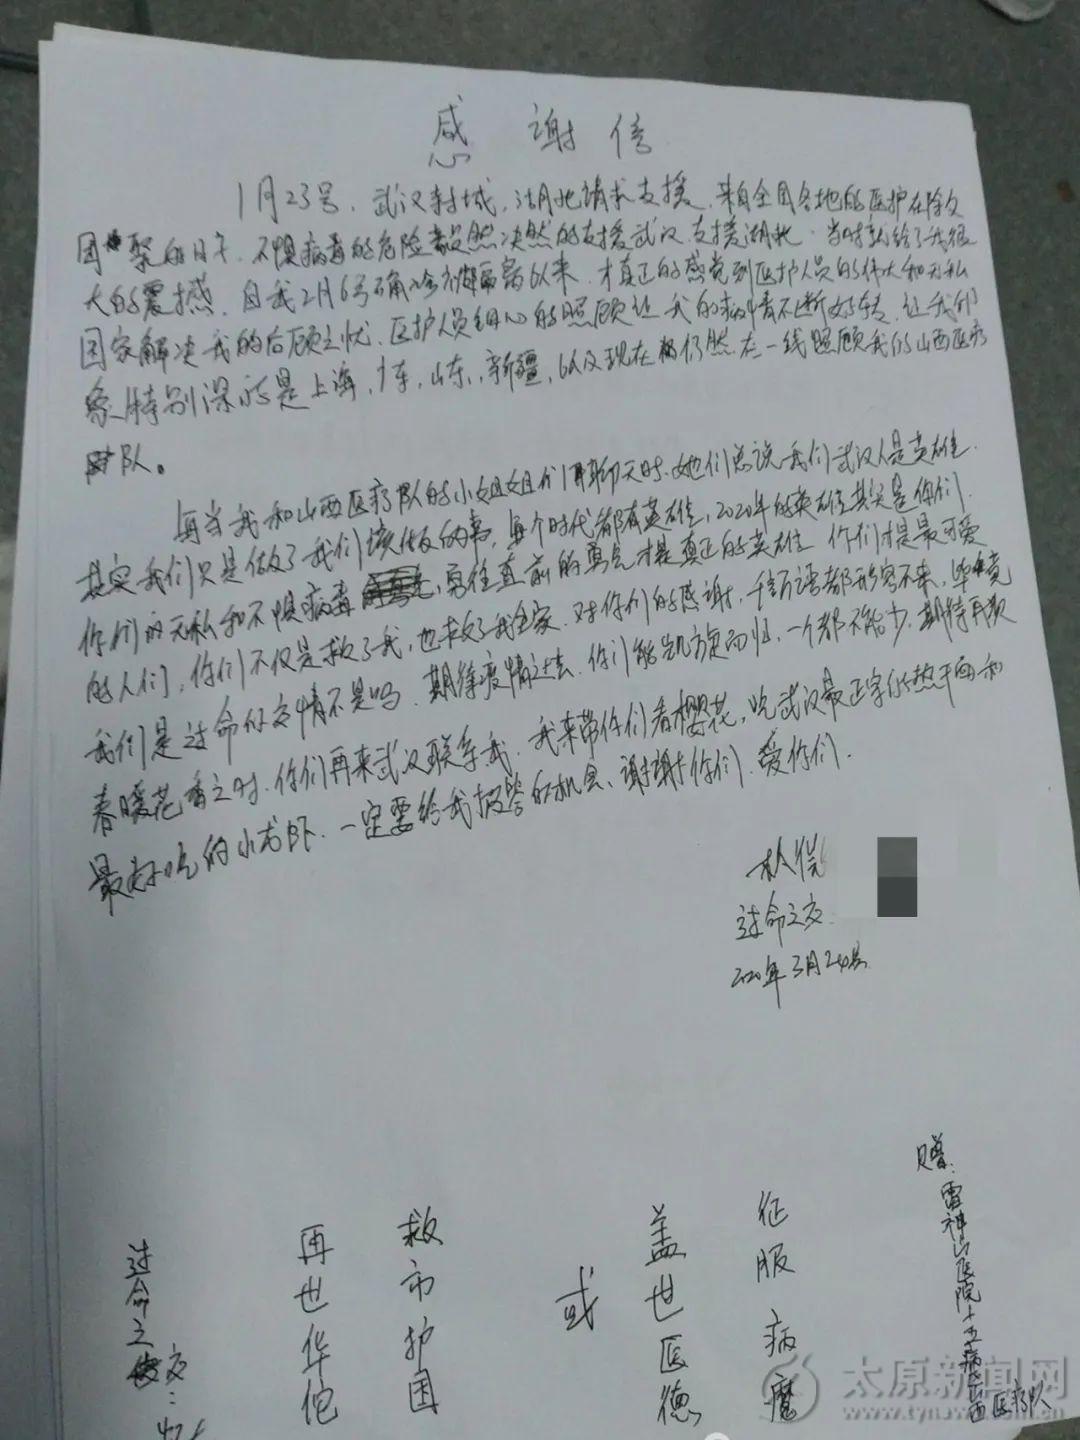 感谢信
1月23号，武汉封城，湖北请求支援，来自全国各地的医护在除夕
团聚的日子，不惧病毒的危险毅然决然的支援武汉，支援湖北，当时就给了我很
大的震撼，自我2月6号确诊以来，才真正的感觉到医护人员的伟大和无私
国家解决我的后顾之忧，医护人员细心的照顾让我的病情不断好转，让我印
象特别深的是上海，广东，山东，新疆，以及现在仍然在一线照顾我的山西医疗
队。
每当我和山西医疗队的小姐姐们聊天时，她们总说我们武汉人是英雄，
其实我们只是做了我们该做的事，每个时代都有英雄，2020年的英雄其实是你们，
你们的无私和不惧病毒，勇往直前的勇气才是真正的英雄，你们才是最可爱
的人们，你们不仅是救了我，也救了我全家，对你们的感谢，千言万语都形容不来，毕竟
我们是过命的交情不是吗，期待疫情过去，你们能凯旋而归，一个都不能少，期待再次
春暖花香之时，你们再来武汉联系我，我来带你们看樱花，吃武汉最正宗的热干面和
最好吃的小龙虾，一定要给我报答的机会，谢谢你们，爱你们，
过命之交：
2020年3月24号
赠：雷神山医院十五病区山西医疗队
征服病魔
盖世医德
或
救市护国
再世华佗
过命之交：
太原新闻网
www.tynews.com.cn